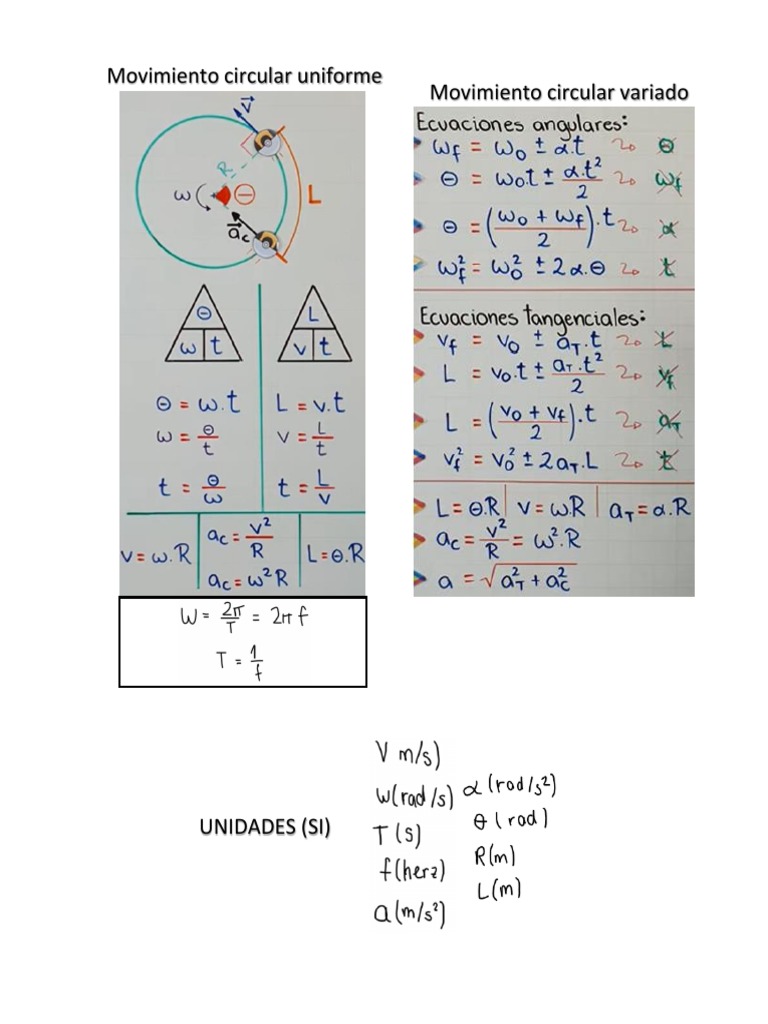 Movimiento circular uniforme
V⃗
R
ω
θ
L
a⃗c
θ
ω t
L
v t
θ = ω.t
ω = θ/t
t = θ/ω
L = v.t
v = L/t
t = L/v
v = ω.R
ac = v²/R
ac = ω²R
L = θ.R
W = 2π/T = 2π f
T = 1/f
Movimiento circular variado
Ecuaciones angulares:
ωf = ω0 ± α.t θ
θ = ω0.t ± α.t²/2 ωf
θ = (ω0 + ωf/2).t α
ωf² = ω0² ± 2α.θ t
Ecuaciones tangenciales:
vf = v0 ± aT.t L
L = v0.t ± aT.t²/2 vf
L = (v0 + vf/2).t aT
vf² = v0² ± 2aT.L t
L = θ.R | v = ω.R | aT = α.R
ac = v²/R = ω².R
a = √aT² + ac²
UNIDADES (SI)
V m/s)
W(rad/s)
T (s)
f(herz)
a(m/s²)
α (rad/s²)
θ (rad)
R(m)
L(m)